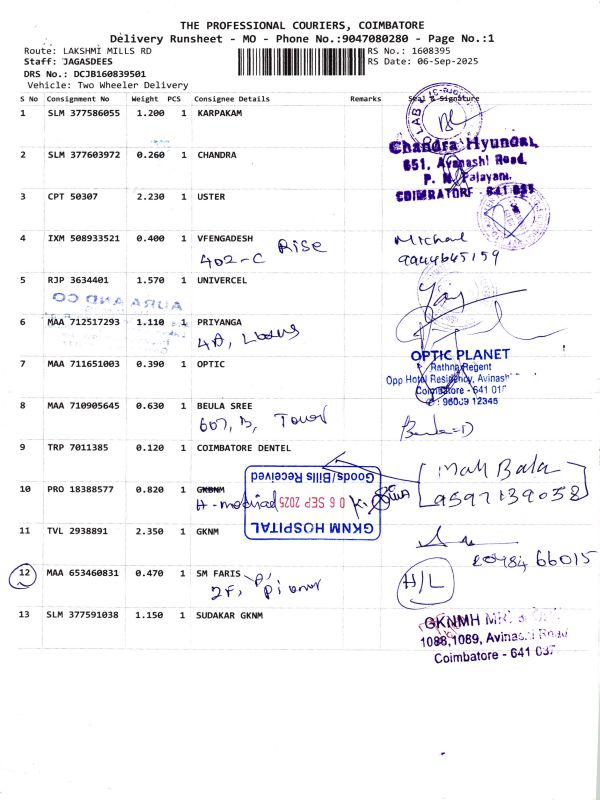 THE PROFESSIONAL COURIERS, COIMBATORE
Delivery Runsheet - MO - Phone No.:9047080280 - Page No.:1
Route: LAKSHMI MILLS RD RS No.: 1608395
Staff: JAGASDEES RS Date: 06-Sep-2025
DRS No.: DCJB160839501
Vehicle: Two Wheeler Delivery
S No Consignment No Weight PCS Consignee Details Remarks Seal & Signature
1 SLM 377586055 1.200 1 KARPAKAM
2 SLM 377603972 0.260 1 CHANDRA
Chandra Hyundai,
651, Avanashi Road,
P. N. Palayam,
COIMBATORE - 641 037
3 CPT 50307 2.230 1 USTER
4 IXM 508933521 0.400 1 VFENGADESH
402-C Rise
Michael
9944645159
5 RJP 3634401 1.570 1 UNIVERCEL
AURA AND CO
6 MAA 712517293 1.110 1 PRIYANGA
4A, Lotus
7 MAA 711651003 0.390 1 OPTIC
OPTIC PLANET
Rathna Regent
Opp Hotel Residency, Avinashi
Coimbatore - 641 018
8 MAA 710905645 0.630 1 BEULA SREE
607, B, Tower
Beula D
9 TRP 7011385 0.120 1 COIMBATORE DENTEL
Mah Bala
9597139058
10 PRO 18388577 0.820 1 GKBNM
H-medical
GKNM HOSPITAL
06 SEP 2025
Goods/Bills Received
11 TVL 2938891 2.350 1 GKNM
66015
12 MAA 653460831 0.470 1 SM FARIS
2F,
H/L
13 SLM 377591038 1.150 1 SUDAKAR GKNM
GKNMH
1088,1089, Avinashi Road
Coimbatore - 641 037